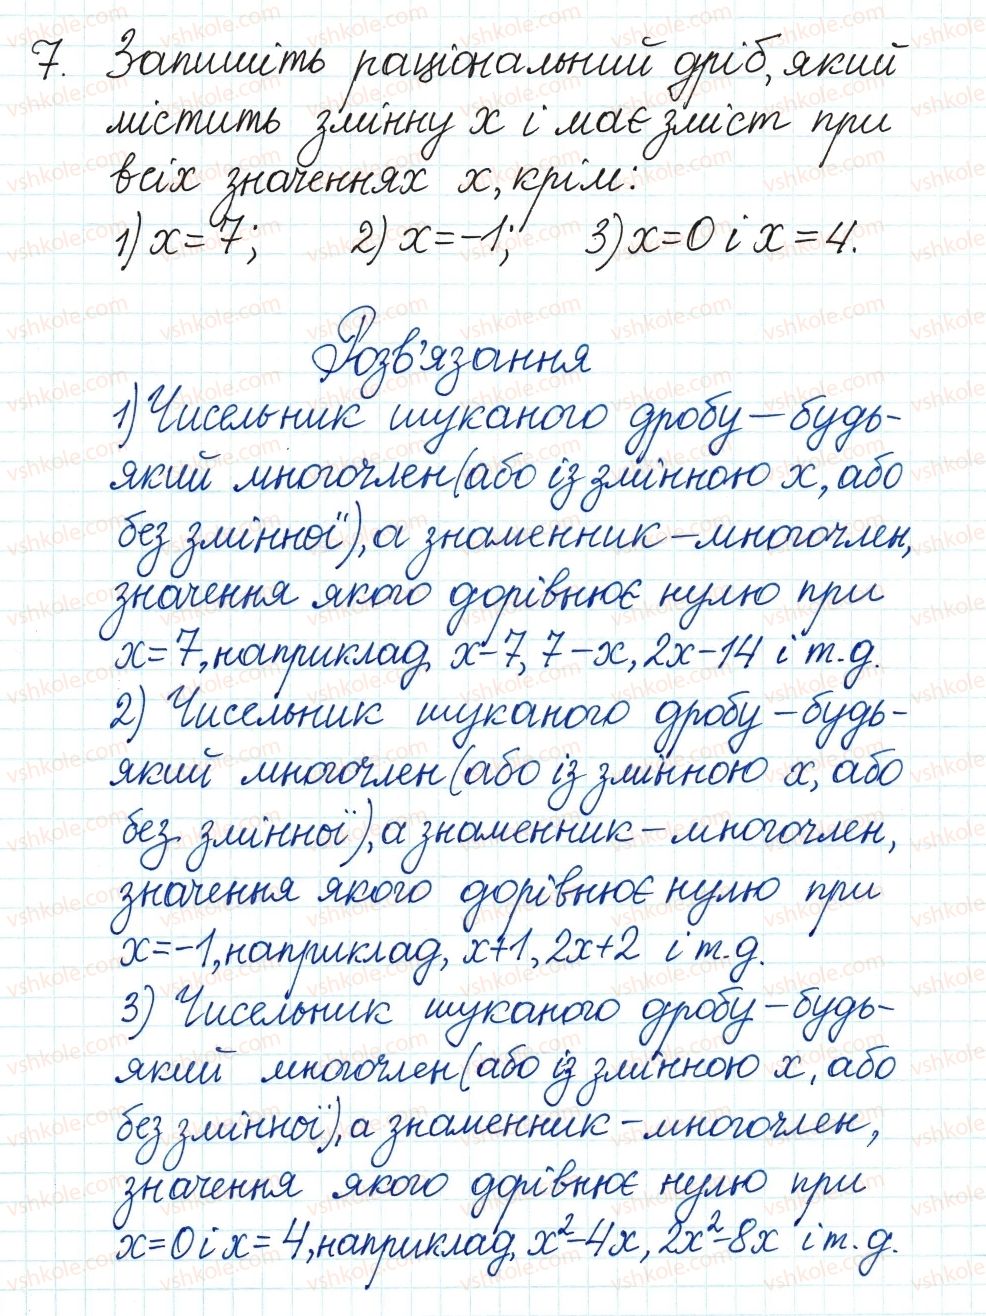 7. Запишіть раціональний дріб, який
містить змінну х і має зміст при
всіх значеннях х, крім:
1) x=7; 2) x=-1; 3) x=0 і x=4.
Розв'язання
1) Чисельник шуканого дробу – будь-
який многочлен (або із змінною х, або
без змінної), а знаменник – многочлен,
значення якого дорівнює нулю при
x=7, наприклад, x-7, 7-x, 2x-14 і т.д.
2) Чисельник шуканого дробу – будь-
який многочлен (або із змінною х, або
без змінної), а знаменник – многочлен,
значення якого дорівнює нулю при
x=-1, наприклад, x+1, 2x+2 і т.д.
3) Чисельник шуканого дробу – будь-
який многочлен (або із змінною х, або
без змінної), а знаменник – многочлен,
значення якого дорівнює нулю при
x=0 і x=4, наприклад, x²-4x, 2x²-8x і т.д.